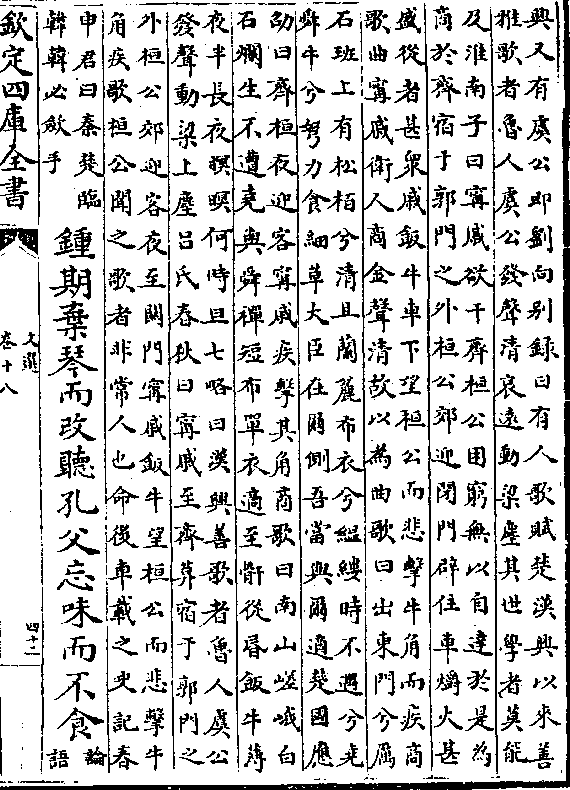 興又有虞公即劉向别録曰有人歌賦楚漢興以來善
雅歌者魯人虞公發聲清哀遠動梁塵其世學者莫能
及淮南子曰寗戚欲干齊桓公困窮無以自達於是為
商於齊宿于郭門之外桓公郊迎閉門辟住車爝火甚
盛從者甚衆戚飯牛車下望桓公而悲擊牛角而疾商
歌曲寗戚衛人商金聲清故以為曲歌曰出東門兮厲
石班上有松栢兮清且蘭麤布衣兮緼縷時不遇兮堯
舜牛兮努力食細草大臣在爾側吾當與爾適楚國應
劭曰齊桓夜迎客寗戚疾擊其角商歌曰南山嵯峨白
石爛生不遭堯與舜禪短布單衣適至骭從昬飯牛薄
夜半長夜暝暝何時旦七略曰漢興善歌者魯人虞公
發聲動梁上塵吕氏春秋曰寗戚至齊暮宿于郭門之
外桓公郊迎客夜至開門寗戚飯牛望桓公而悲擊牛
角疾歌桓公聞之歌者非常人也命後車載之史記春
申君曰秦楚臨
韓韓必斂手
鍾期棄琴而改聽孔父忘味而不食
論
語
欽定四庫全書
文選
卷十八
四十二